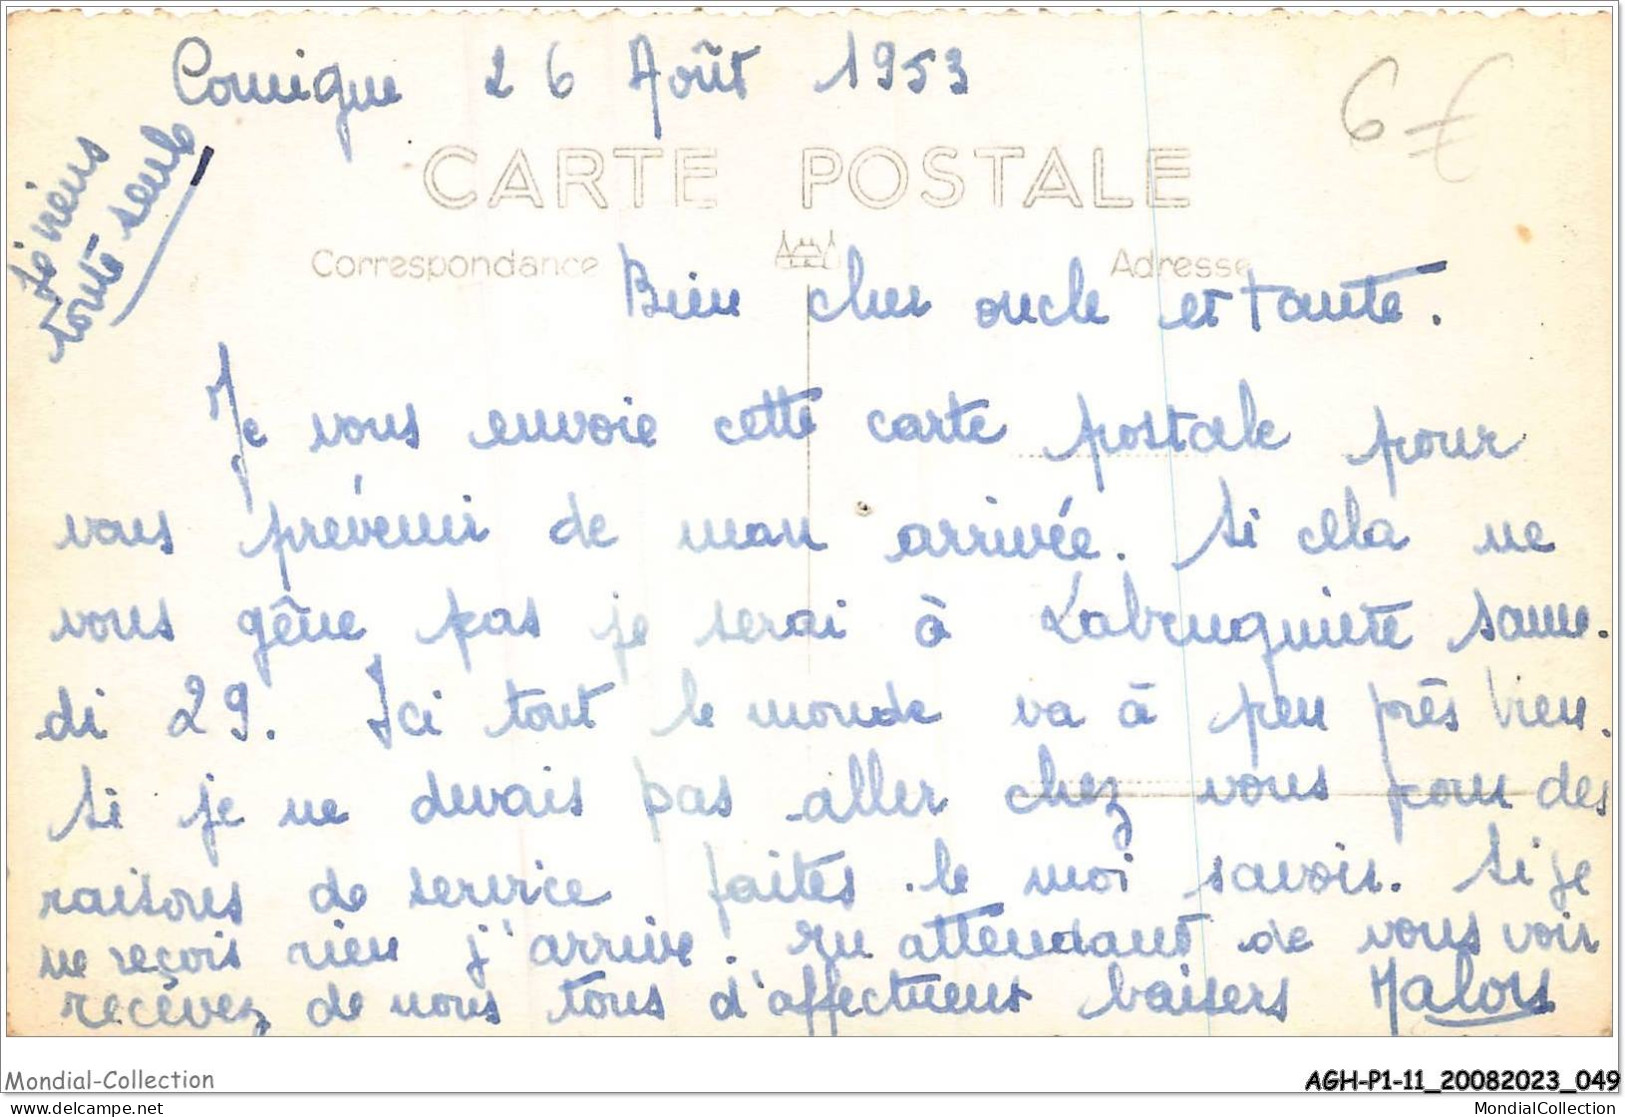 Comigne 26 Août 1953
6 €
Je viens
toute seule
CARTE POSTALE
Correspondance
Adresse
Bien cher oncle et tante.
Je vous envoie cette carte postale pour
vous prévenir de mon arrivée. Si cela ne
vous gêne pas je serai à Labruguière same-
di 29. Ici tout le monde va à peu près bien.
Si je ne devais pas aller chez vous pour des
raisons de service faites-le moi savoir. Si je
ne reçois rien j'arrive. En attendant de vous voir
recevez de nous tous d'affectueux baisers
Mondial-Collection
AGH-P1-11_20082023_049
MondialCollection.com
MondialCollection